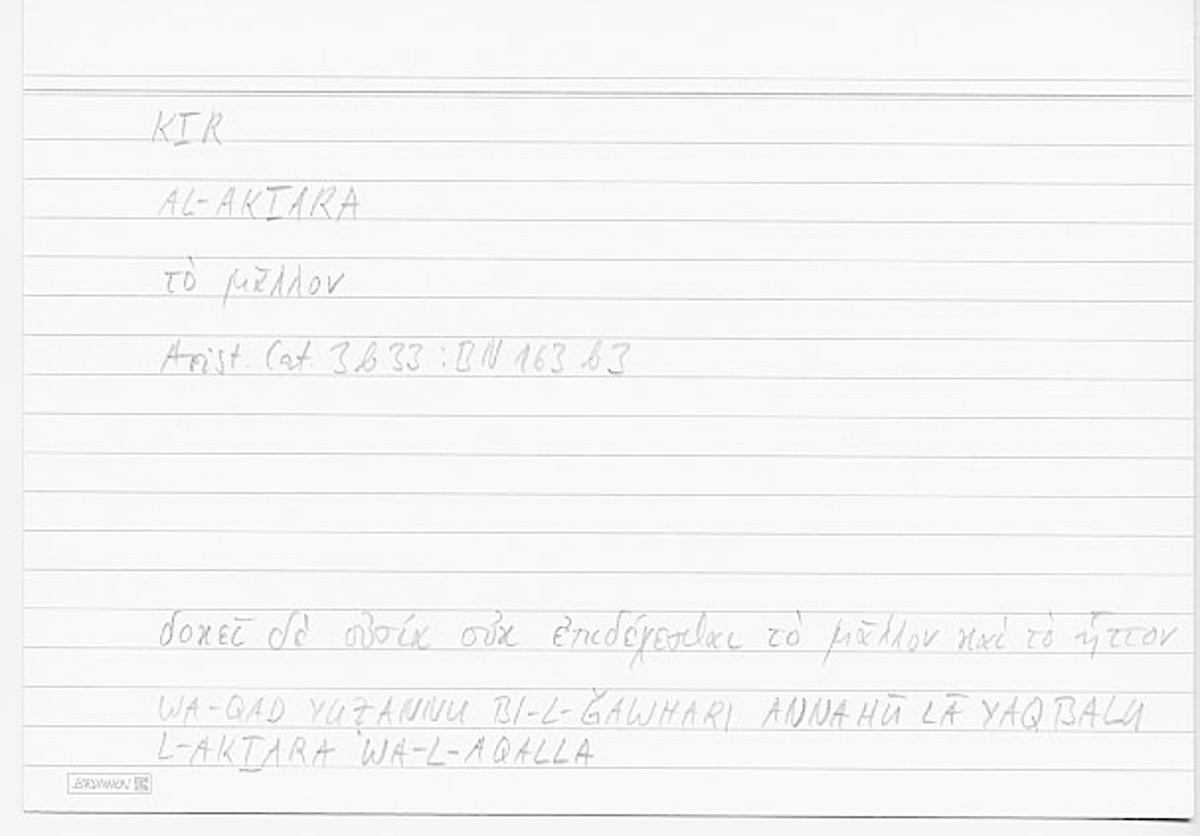 KṮR
AL-AKṮARA
τὸ μᾶλλον
Arist. Cat. 3 b 33 : BN 163 b 3
δοκεῖ δὲ οὐσία οὐκ ἐπιδέχεσθαι τὸ μᾶλλον καὶ τὸ ἧττον
WA-QAD YUẒANNU BI-L-ǦAWHARI ANNAHŪ LĀ YAQBALU
L-AKṮARA WA-L-AQALLA
BRUNNEN